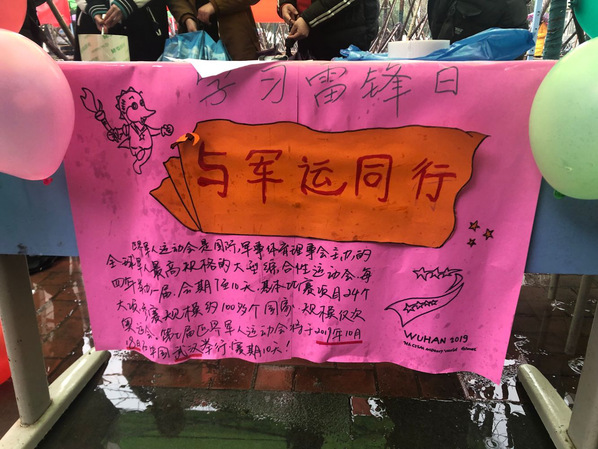 学习雷锋日
与军运同行
世界军人运动会是国际军事体育理事会主办的
全球军人最高规格的大型综合性运动会,每
四年举办一届,会期7至10天,基本比赛项目24个
大项,参赛规模约100多个国家,规模仅次
奥运会。第七届世界军人运动会将于2019年10月
18日在中国武汉举行,赛期10天!
WUHAN 2019
7th CISM military world Games